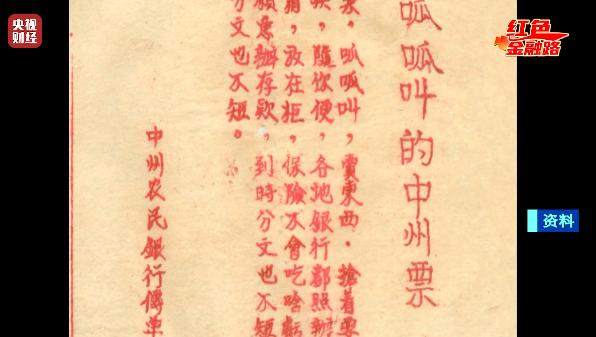 央视财经
红色金融路
资料
呱呱叫的中州票
呱呱叫，賣東西．搶着要
隨你便，各地銀行都照辦
箱，放在柜，保險不會吃啥虧
意辦存款，到時分文也不短
分文也不短。
中州农民銀行傳单